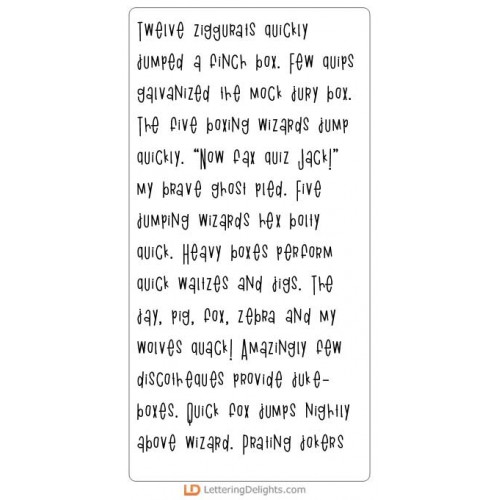 Twelve ziggurats quickly
jumped a finch box. Few quips
galvanized the mock jury box.
The five boxing wizards jump
quickly. "Now fax quiz Jack!"
my brave ghost pled. Five
jumping wizards hex bolty
quick. Heavy boxes perform
quick waltzes and jigs. The
jay, pig, fox, zebra and my
wolves quack! Amazingly few
discotheques provide juke-
boxes. Quick fox jumps nightly
above wizard. Prating jokers
LD LetteringDelights.com